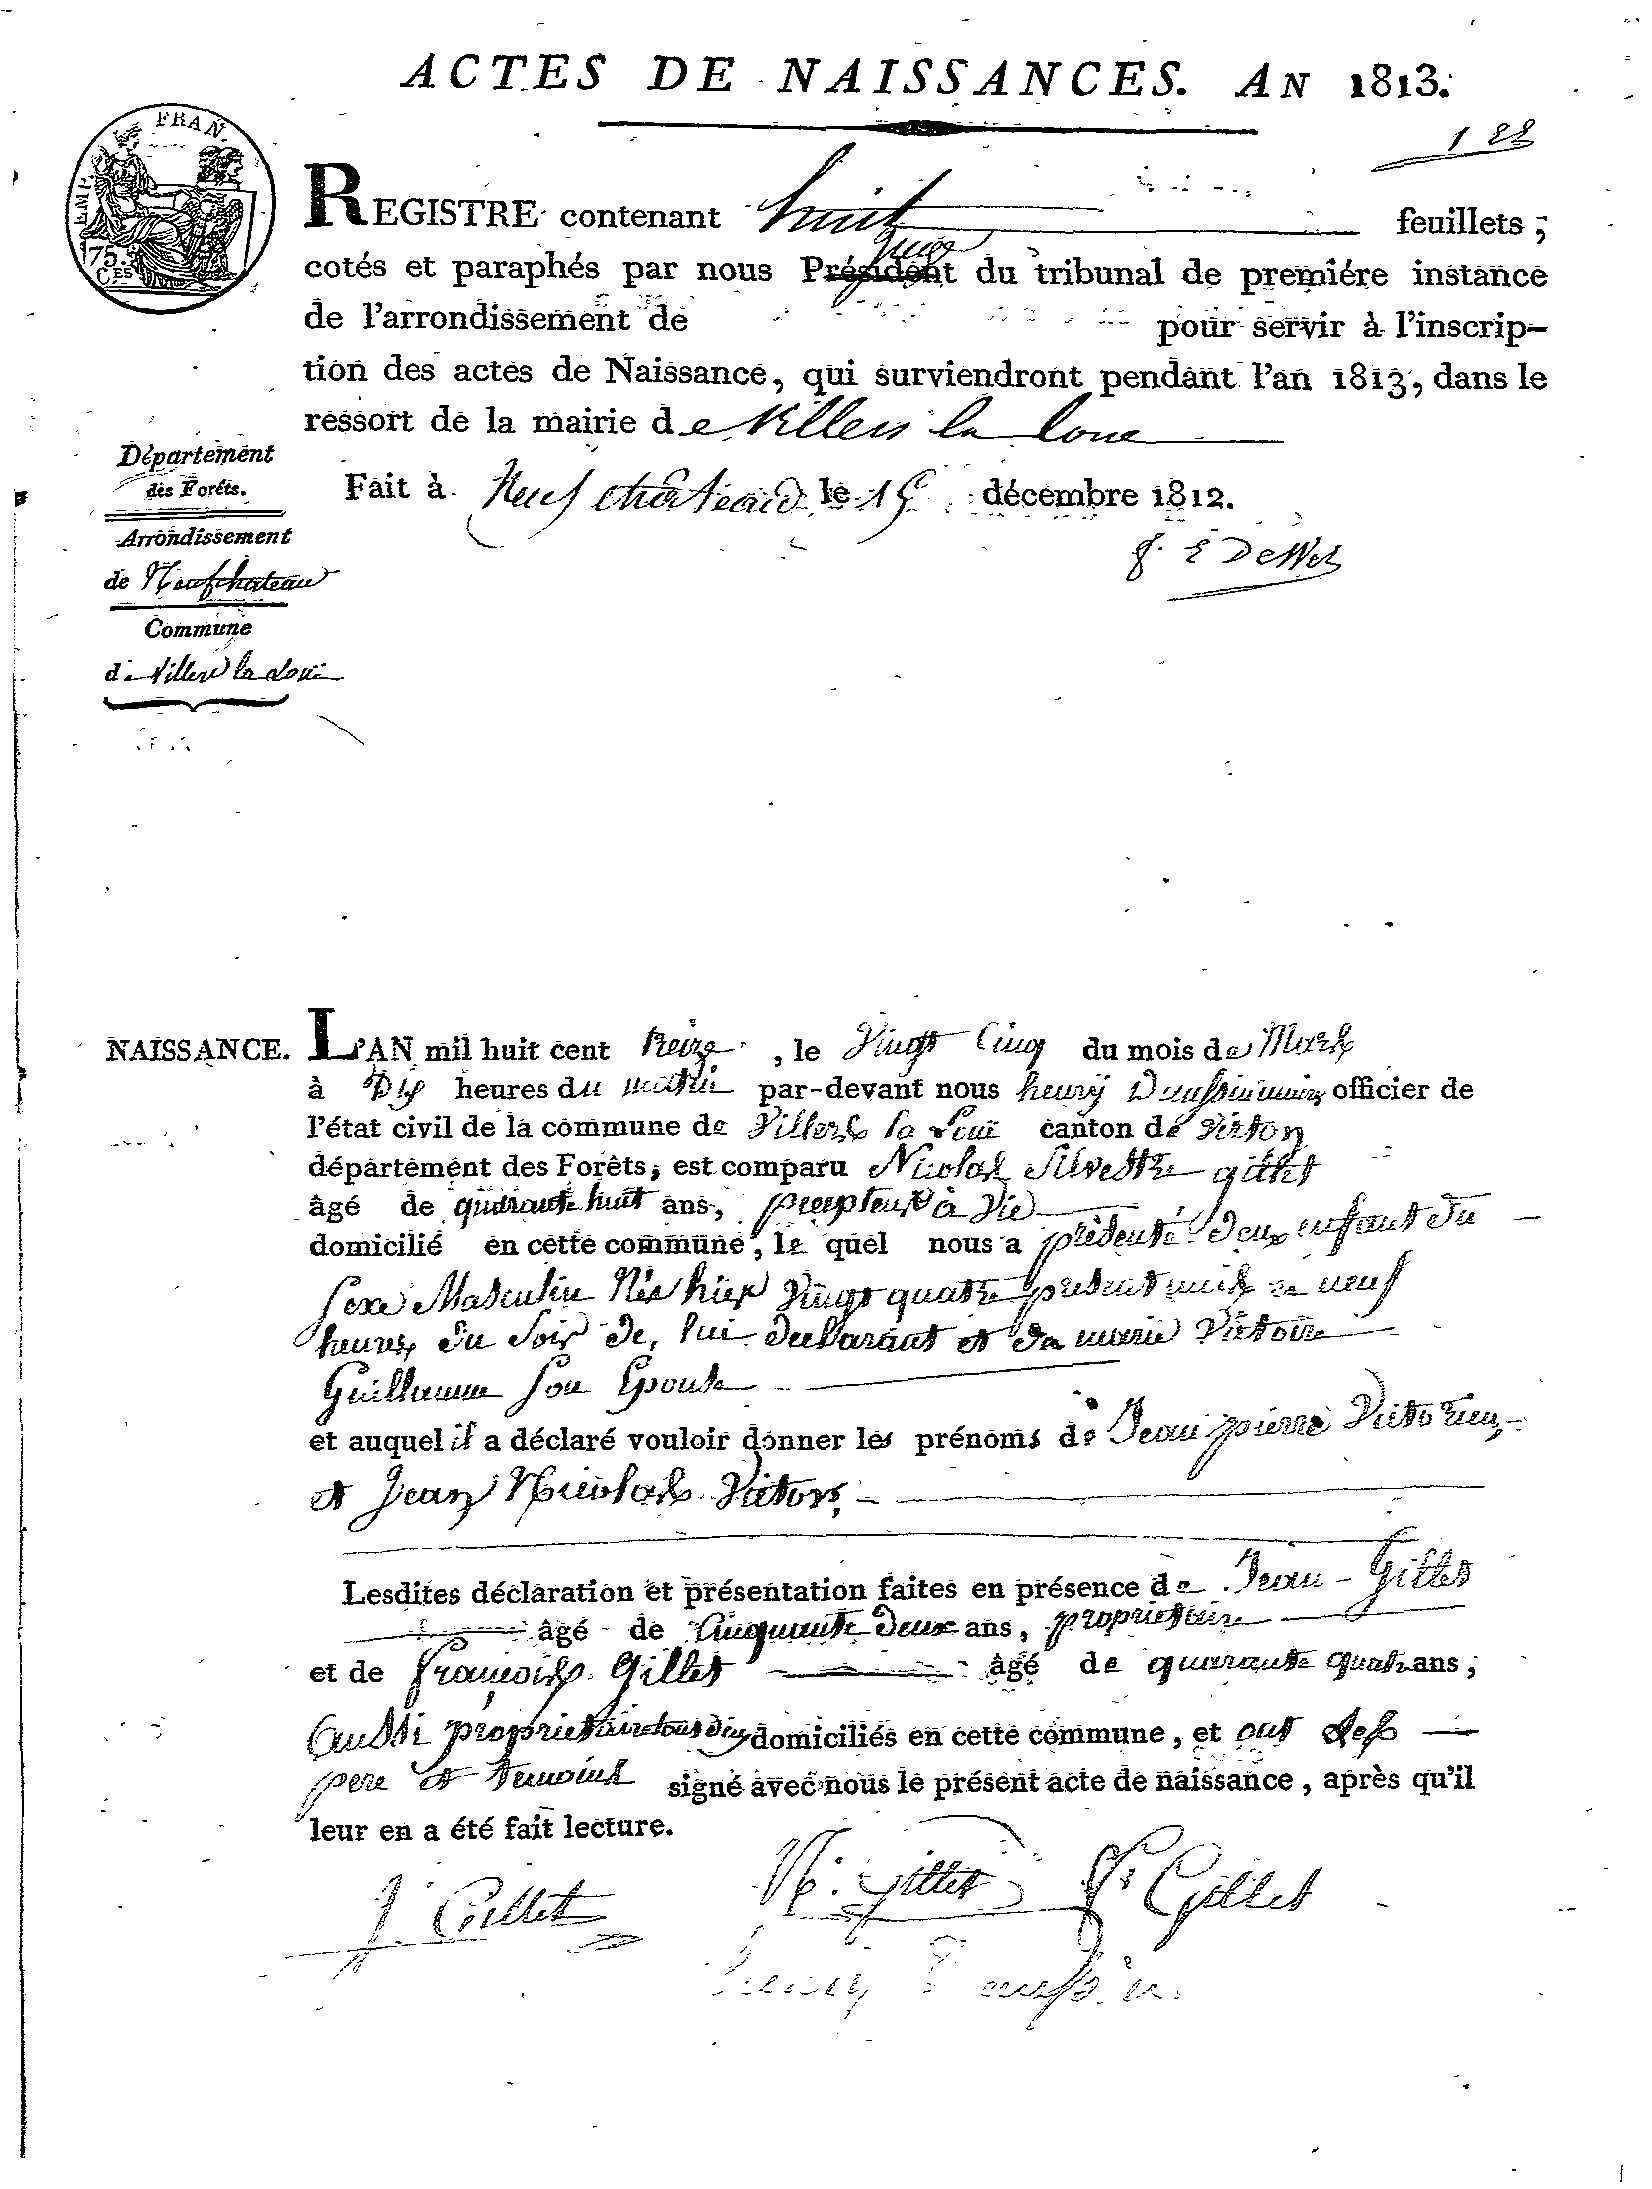 ACTES DE NAISSANCES. AN 1813.
188
EMP. FRAN.
75.
CES
REGISTRE contenant huit feuillets ;
juge
cotés et paraphés par nous Président du tribunal de premiére instance
de l'arrondissement de pour servir à l'inscrip-
tion des actes de Naissance, qui surviendront pendant l'an 1813, dans le
ressort de la mairie de Villers la Loue
Fait à Neufchâteau le 15 décembre 1812.
Département
des Forêts.
Arrondissement
de Neufchateau
Commune
de Villers la Loue
NAISSANCE.
L'AN mil huit cent treize, le Vingt Cinq du mois de Mars
à Dix heures du matin par-devant nous henry officier de
l'état civil de la commune de Villers la Loue canton de Virton
département des Forêts, est comparu Nicolas Silvestre gillet
âgé de quarante huit ans, percepteur à Vie
domicilié en cette commune, le quel nous a présenté deux enfant du
sexe Masculin Nés hier Vingt quatre présent mois à neuf
heures du Soir de, lui declarant et da marie Victoire
Guillaume son Epouse
et auquel il a déclaré vouloir donner les prénoms de Jean pierre Victorien,
et Jean Nicolas Victor,
Lesdites déclaration et présentation faites en présence de Jean Gillet
âgé de cinquante deux ans, proprietaire
et de François Gillet âgé de quarante quatre ans ;
aussi proprietaire tous deux domiciliés en cette commune, et ont les
pere et temoins signé avec nous le présent acte de naissance, après qu'il
leur en a été fait lecture.
J. Gillet
N. Gillet
Fs Gillet